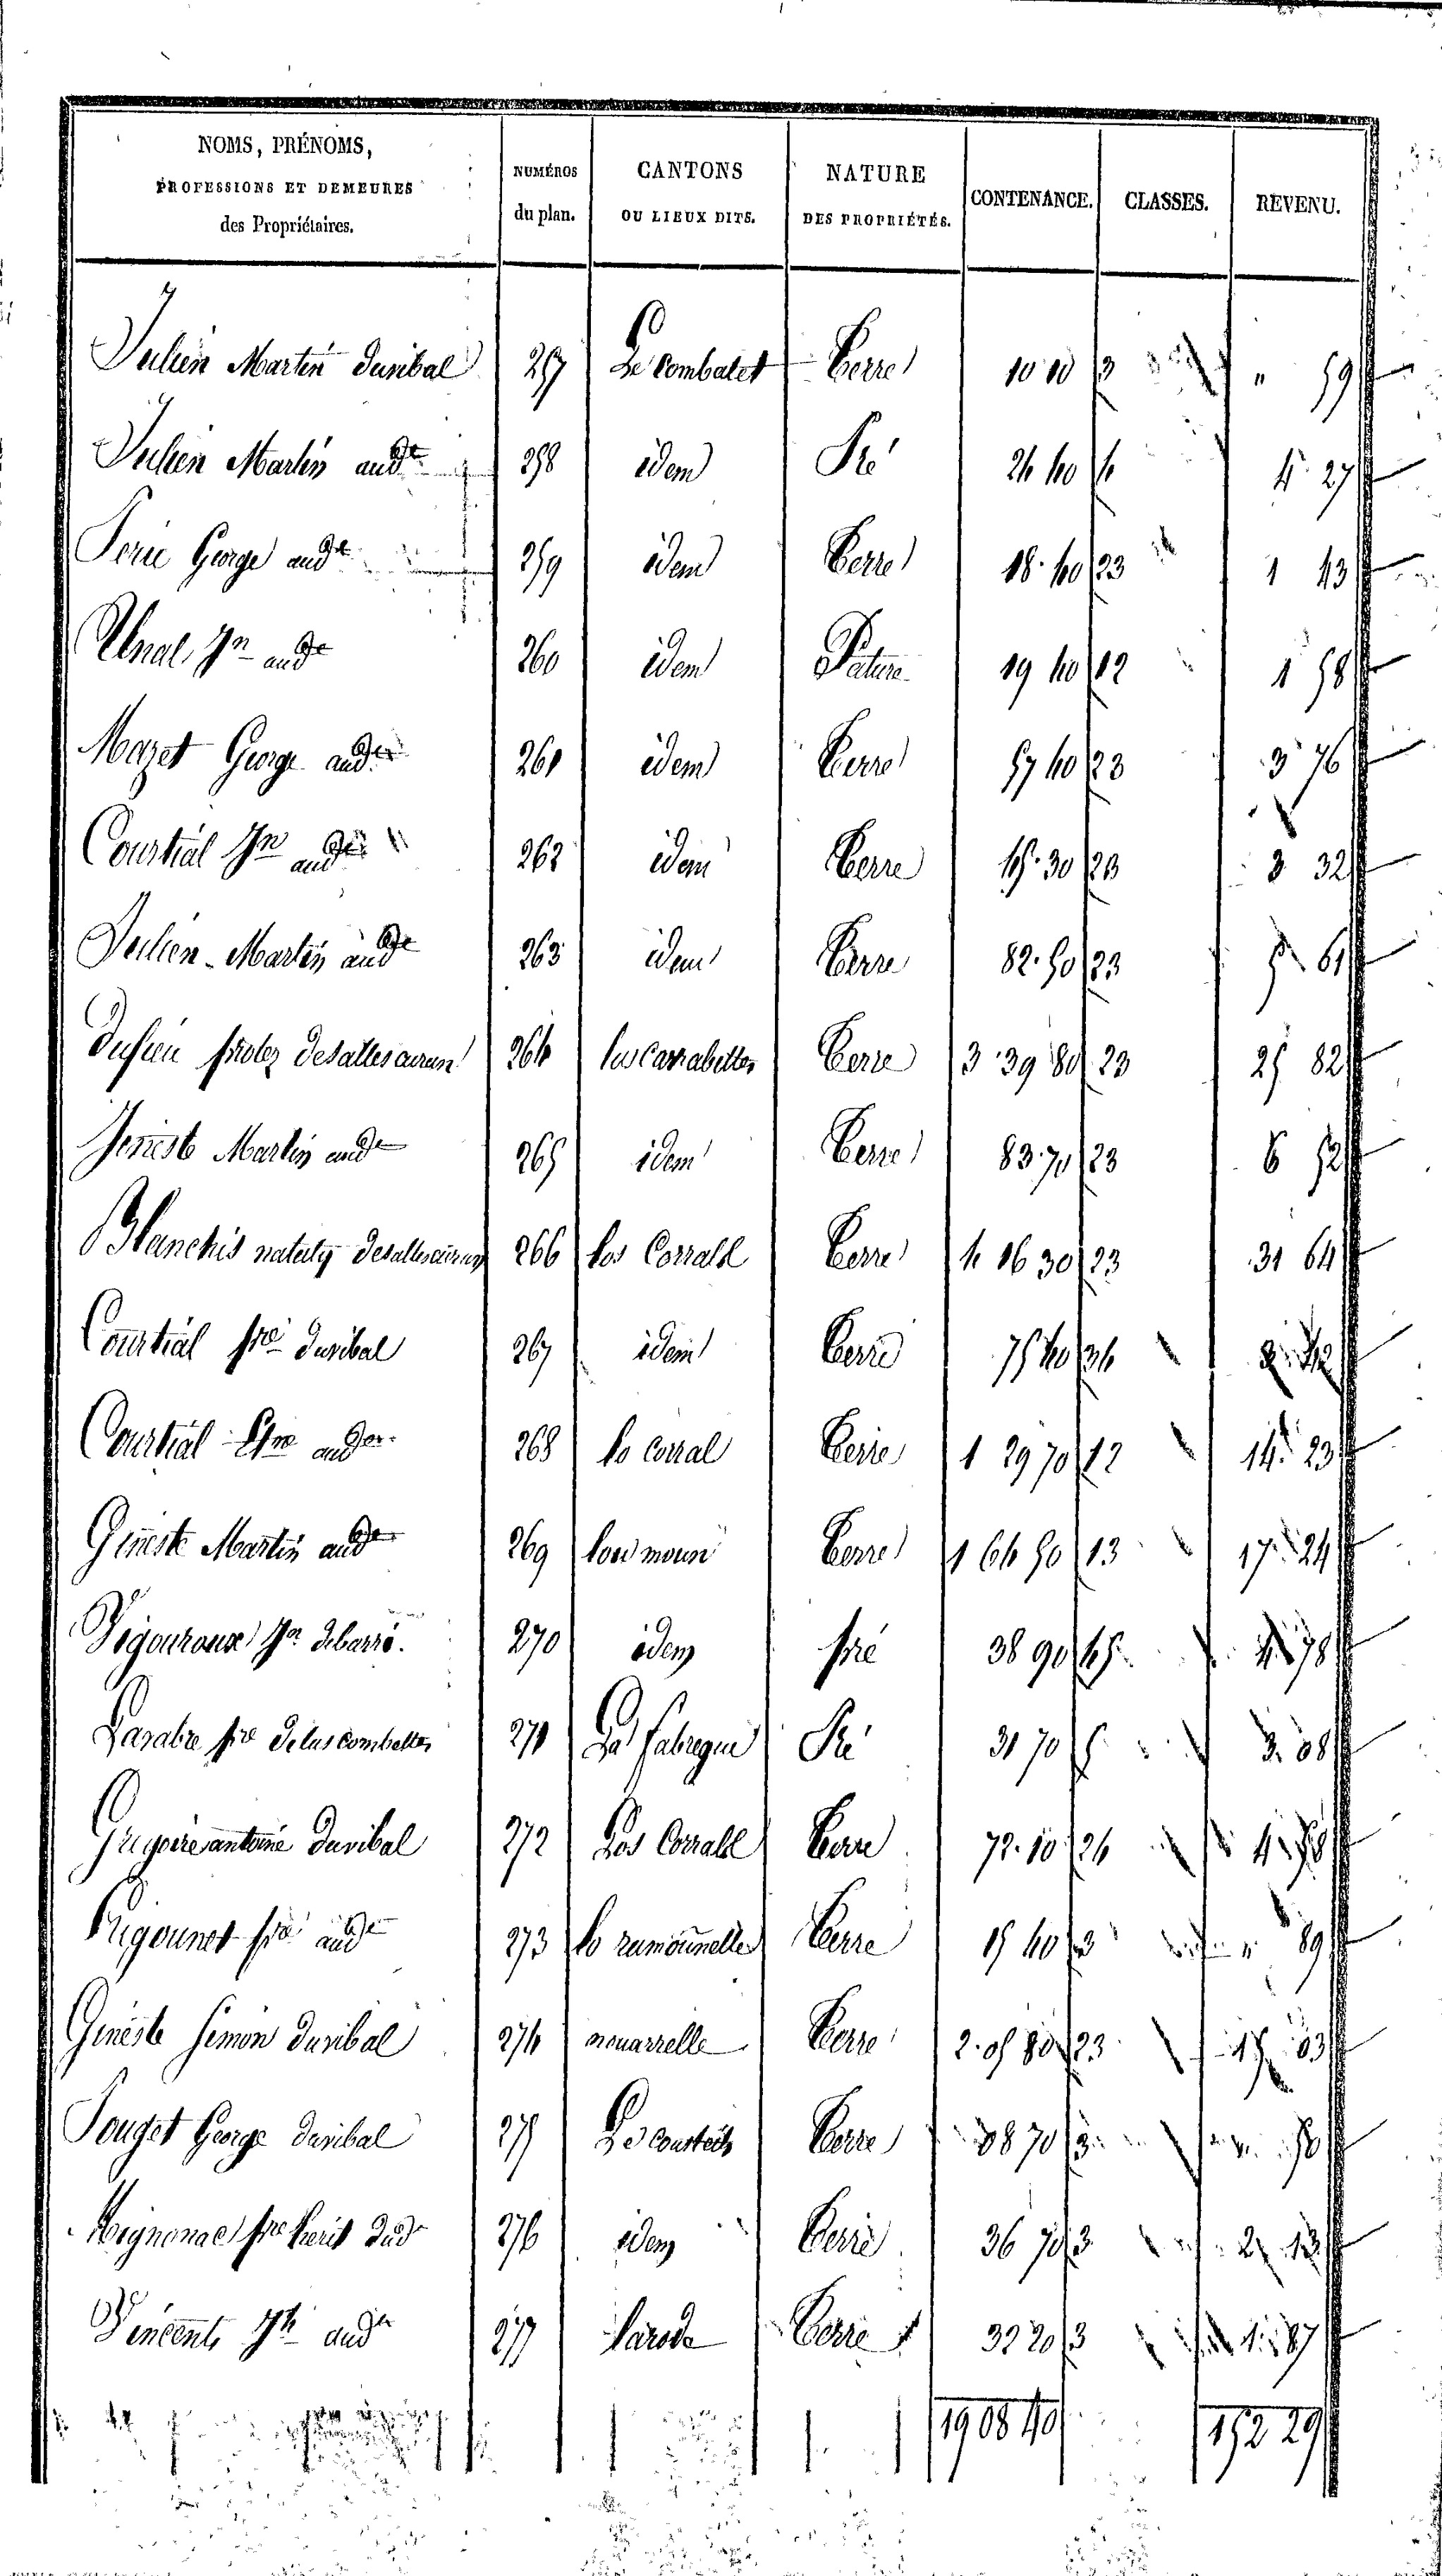 NOMS, PRÉNOMS,
PROFESSIONS ET DEMEURES
des Propriétaires.
NUMÉROS
du plan.
CANTONS
OU LIEUX DITS.
NATURE
DES PROPRIÉTÉS.
CONTENANCE.
CLASSES.
REVENU.
Julien Martin Duribal 257 Le Combalet Terre 10 10 3 " 59
Julien Martin audt 258 idem Pré 24 40 4 4 27
George audt 259 idem Terre 18 40 23 1 43
Unal Jn audt 260 idem Pature 19 40 12 1 58
Mazet George audt 261 idem Terre 57 40 23 3 76
Courtial Jn audt 262 idem Terre 30 23 3 32
Julien Martin audt 263 idem Terre 82 50 23 5 61
264 las Carrabettes Terre 3 39 80 23 25 82
Jeneste Martin audt 265 idem Terre 83 70 23 6 52
Blanchis 266 los Corrals Terre 4 16 30 23 31 64
Courtial fre Duribal 267 idem Terre 75 40 34
Courtial audt 268 lo Corral Terre 1 29 70 12 14 23
Gineste Martin audt 269 Terre 1 64 50 13 17 24
Vigouroux Jn debarré. 270 idem pré 38 90 45 4 78
fre de las combettes 271 La fabregue Pré 31 70 5 3 08
Gregoire antoine Duribal 272 Los Corrals Terre 72 10 24 4 58
fre audt 273 lo ramounelle Terre 15 40 3 " 89
Gineste Simon Duribal 274 nouarrelle Terre 2 05 80 23 15 03
Pouget George Duribal 275 Le Terre 08 70 3 " 50
fre 276 idem Terre 36 70 3 2 13
Vincent audt 277 Terre 32 20 3 1 87
19 08 40 152 29